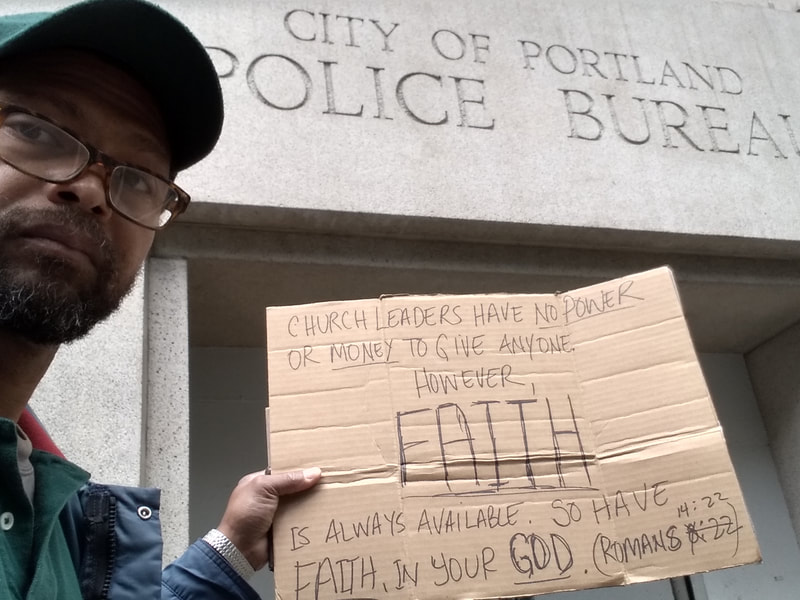 CITY OF PORTLAND
POLICE BUREAU
CHURCH LEADERS HAVE NO POWER
OR MONEY TO GIVE ANYONE.
HOWEVER,
FAITH
IS ALWAYS AVAILABLE. SO HAVE
14:22
FAITH, IN YOUR GOD. (ROMANS 8:22)